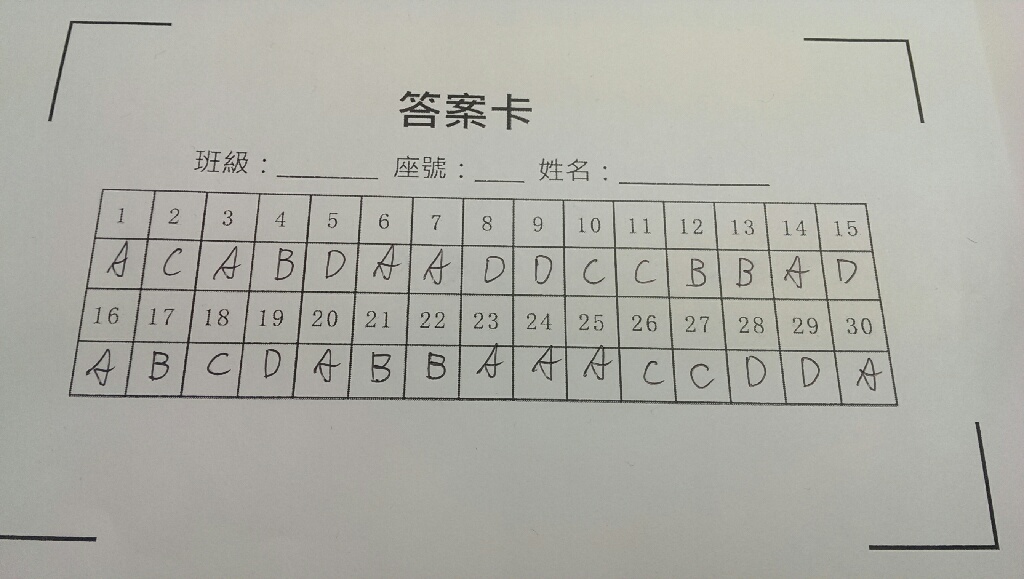 答案卡
班級：________ 座號：____ 姓名：____________
1 2 3 4 5 6 7 8 9 10 11 12 13 14 15
A C A B D A A D D C C B B A D
16 17 18 19 20 21 22 23 24 25 26 27 28 29 30
A B C D A B B A A A C C D D A